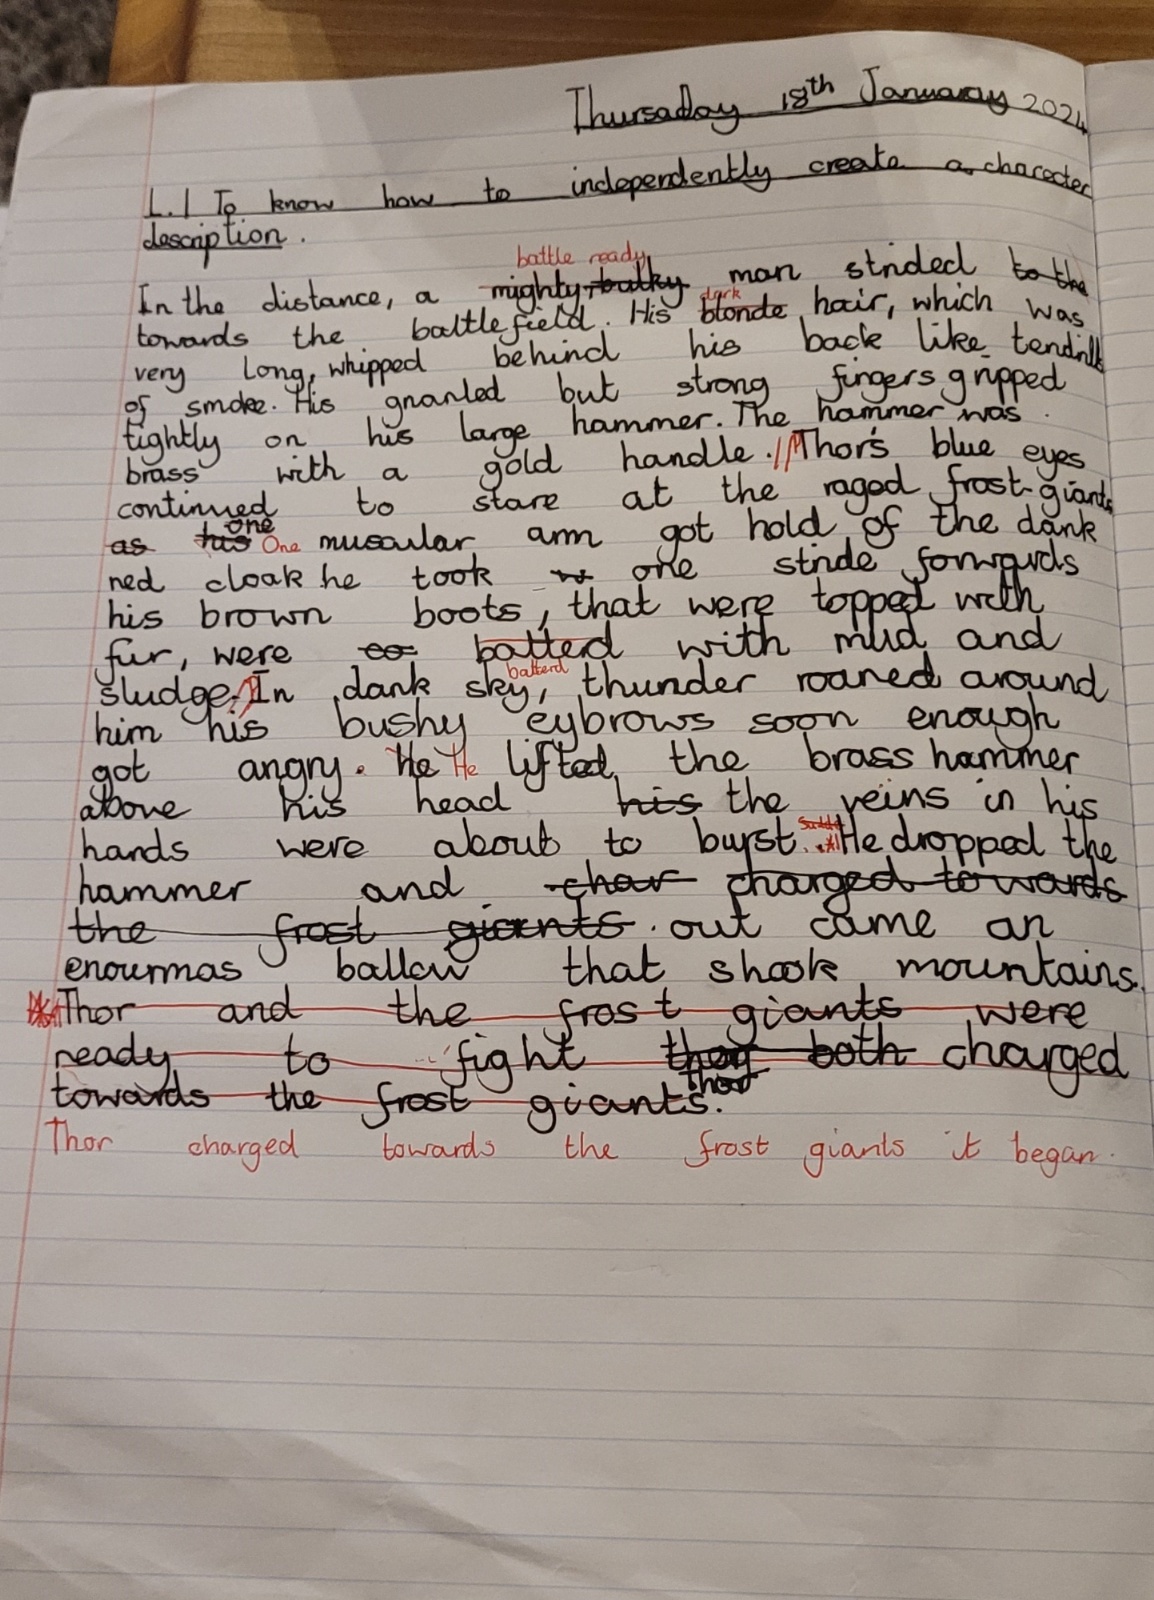 Thursaday 18th January 2024
L.I To know how to independently create a character
description.
battle ready
In the distance, a mighty, bulky man strided to the
dark
towards the battlefield. His blonde hair, which was
very long, whipped behind his back like tendrills
of smoke. His gnarled but strong fingers gripped
tightly on his large hammer. The hammer was
brass with a gold handle. // Thor's blue eyes
continued to stare at the raged frost giants
one
as his One muscular arm got hold of the dark
red cloak he took one stride forwards
his brown boots, that were topped with
fur, were battled with mud and
batterd
sludge. // In dark sky, thunder roared around
him his bushy eybrows soon enough
got angry. He He lifted the brass hammer
above his head his the veins in his
hands were about to burst. He dropped the
hammer and char charged towards
the frost giants. out came an
enourmas ballow that shook mountains.
Thor and the frost giants were
ready to fight they both charged
Thor
towards the frost giants.
Thor charged towards the frost giants it began.